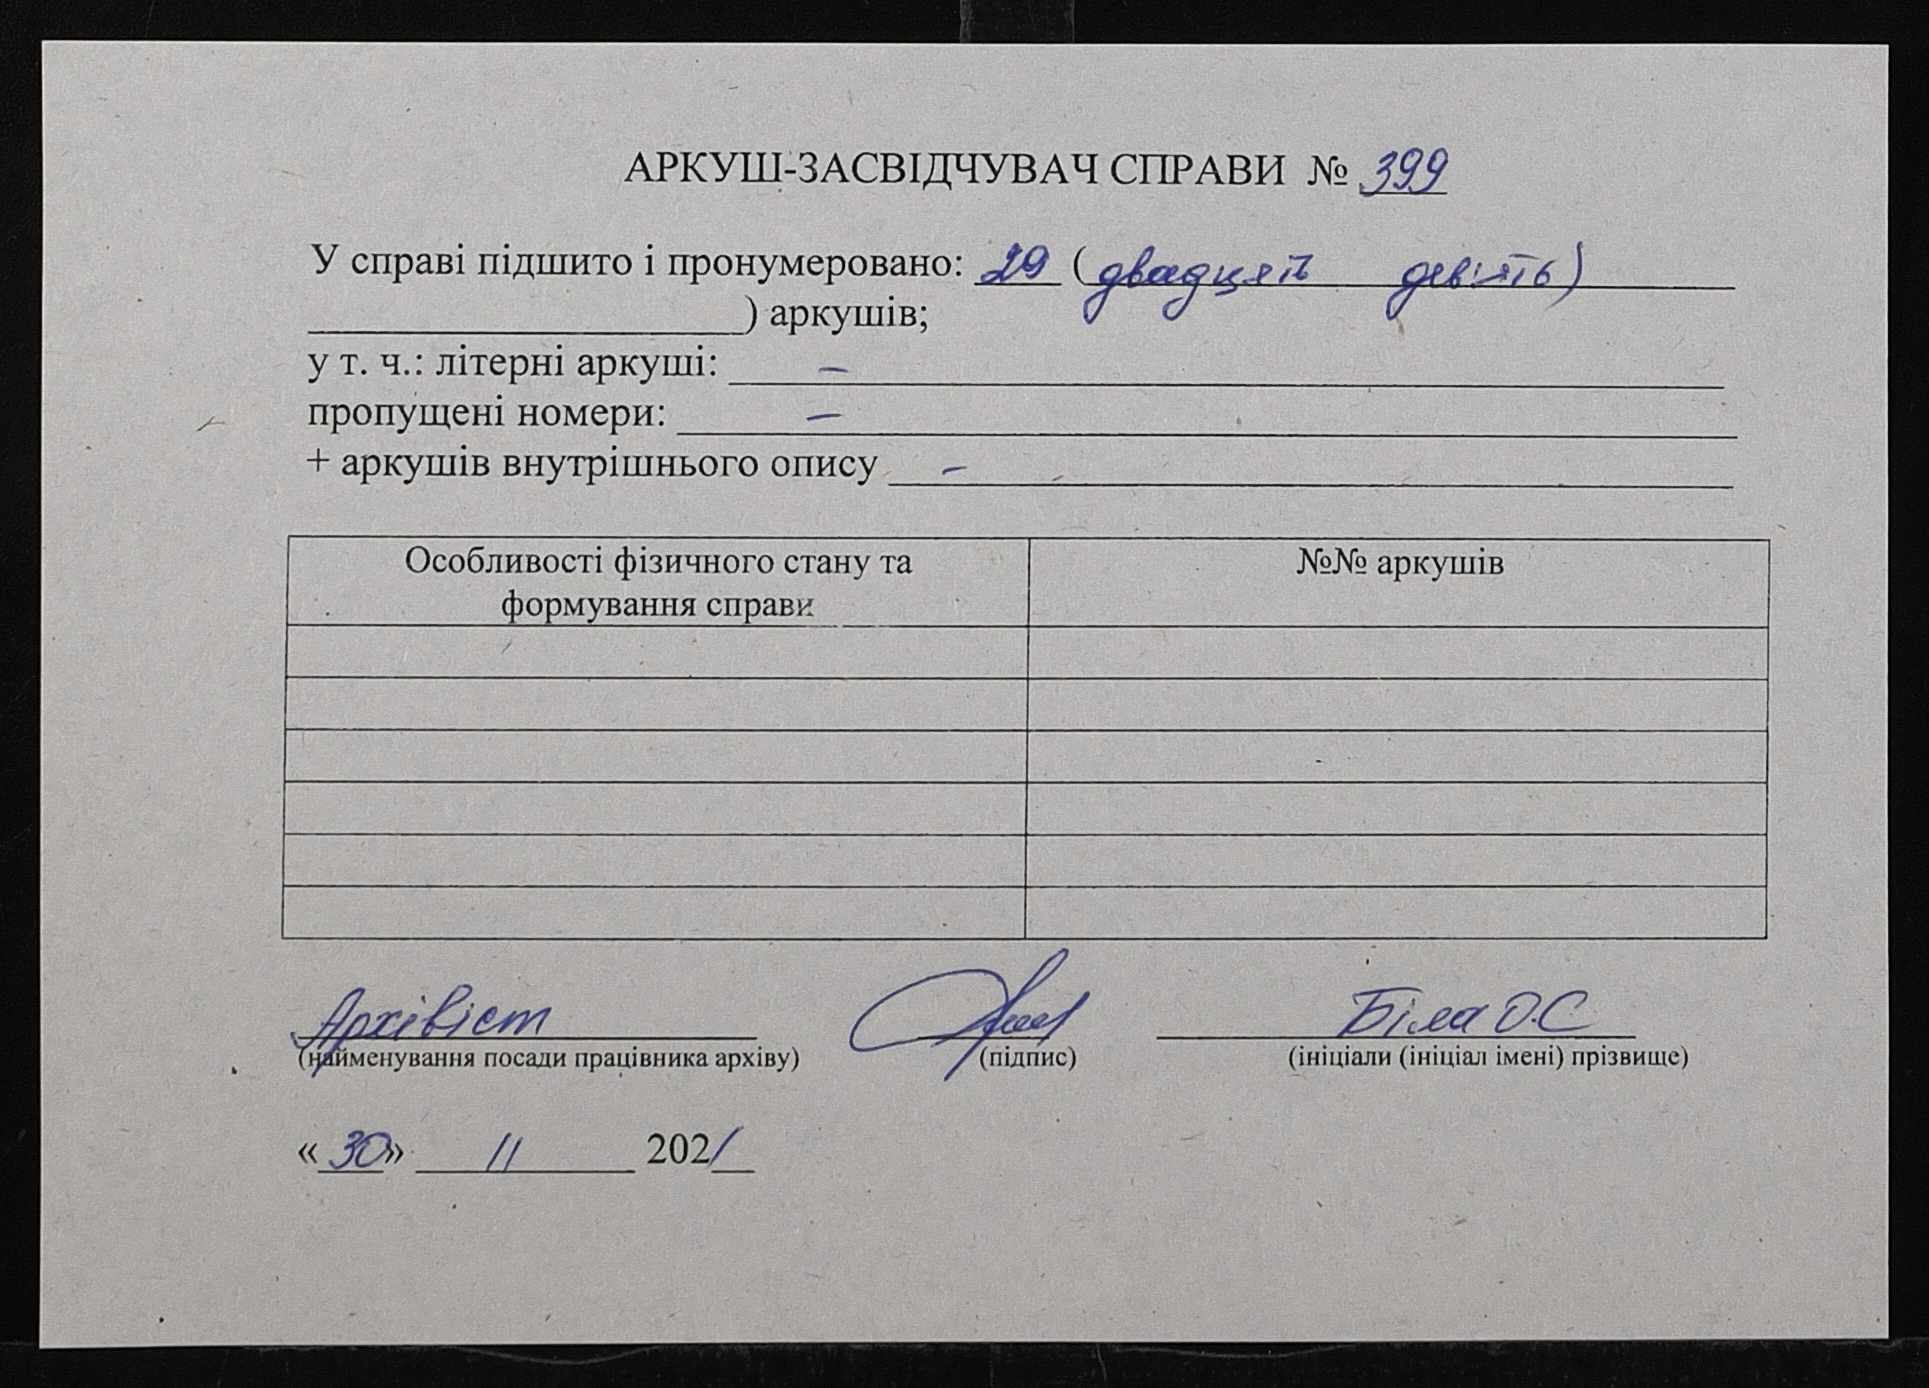 АРКУШ-ЗАСВІДЧУВАЧ СПРАВИ № 399
У справі підшито і пронумеровано: 29 (двадцять девять)
) аркушів;
у т. ч.: літерні аркуші: –
пропущені номери: –
+ аркушів внутрішнього опису –
Особливості фізичного стану та №№ аркушів
формування справи
Архівіст Біла О.С
(найменування посади працівника архіву) (підпис) (ініціали (ініціал імені) прізвище)
«30» 11 2021